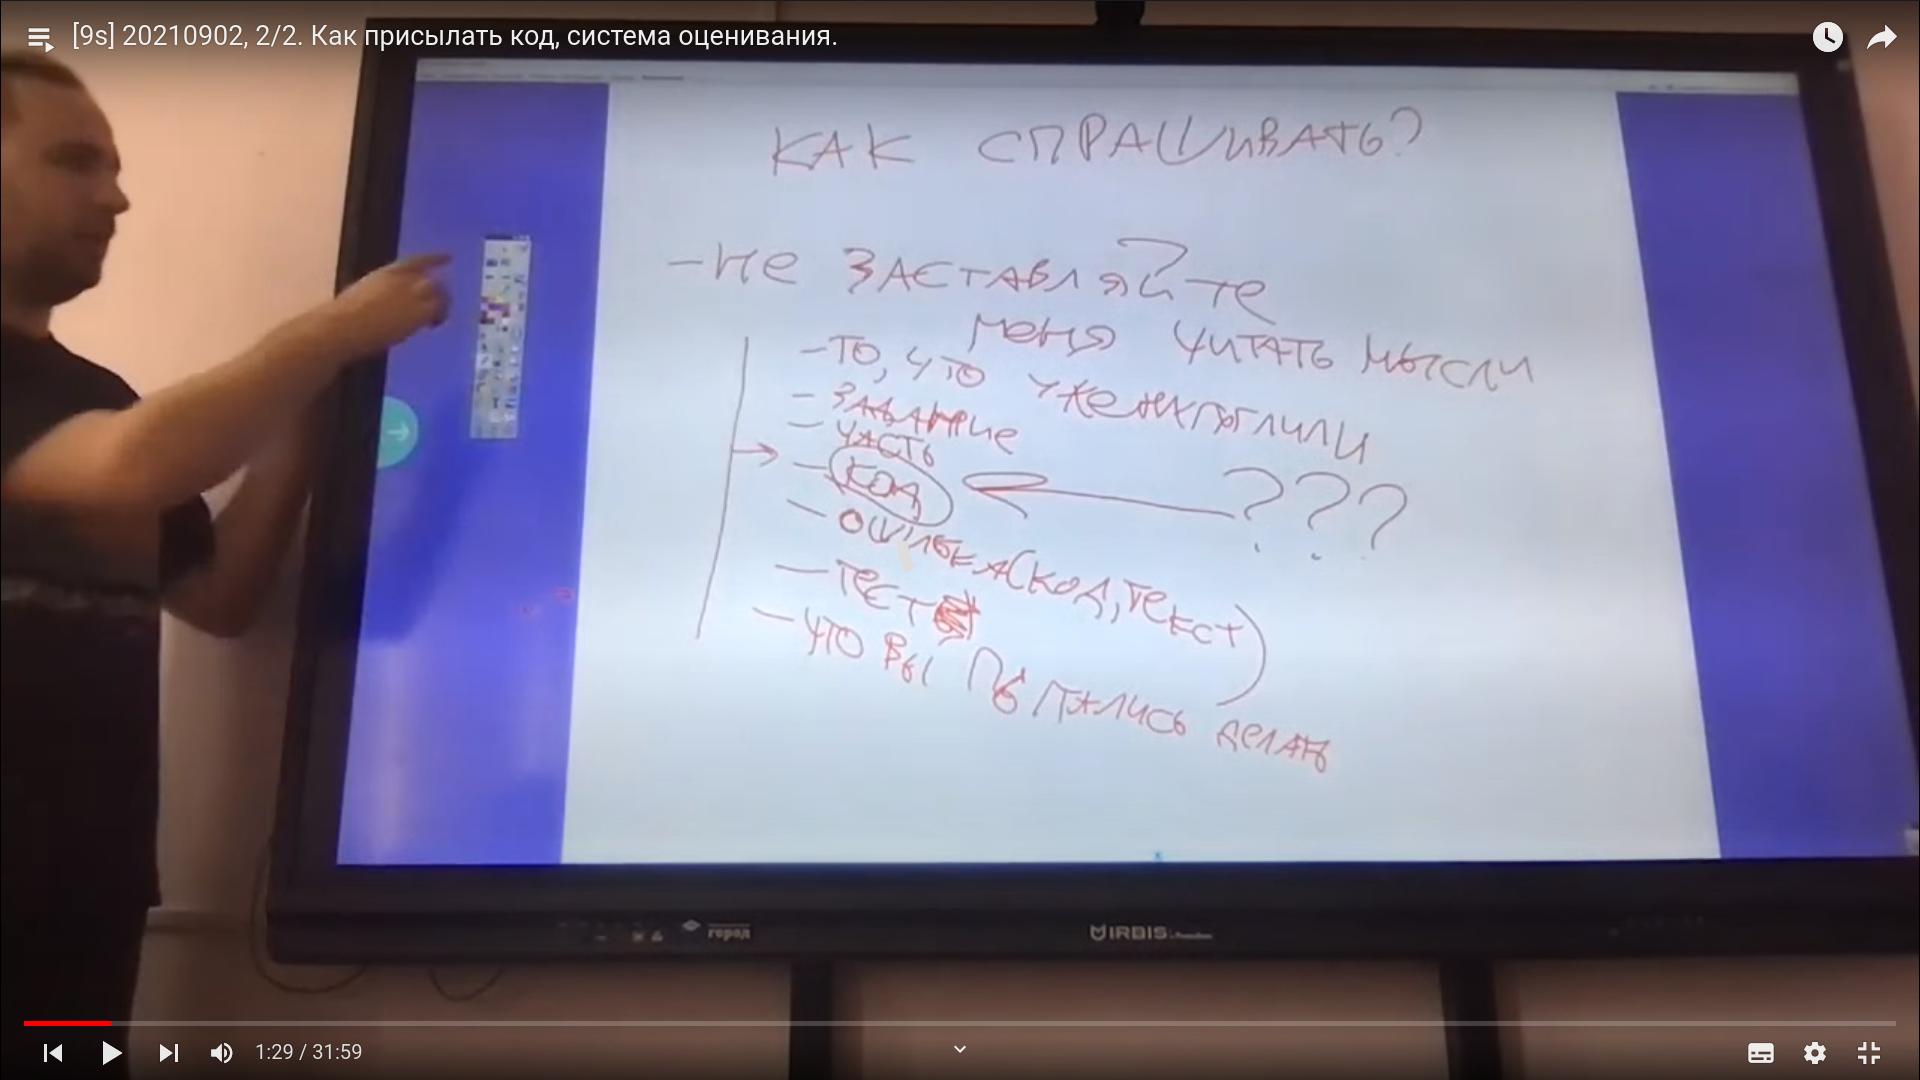 [9s] 20210902, 2/2. Как присылать код, система оценивания.
КАК СПРАШИВАТЬ?
- не ЗАСТАВЛЯйТе
меня ЧИТАТЬ мысли
- ТО, ЧТО уже нагуглили
- ЗАДАНИе
- ЧАСТЬ
- КОД
???
- ОШИБКА (КОД, ТеКСТ)
- ТеСТ
- ЧТО Вы ПыТАЛИСЬ делать
город
IRBIS
1:29 / 31:59